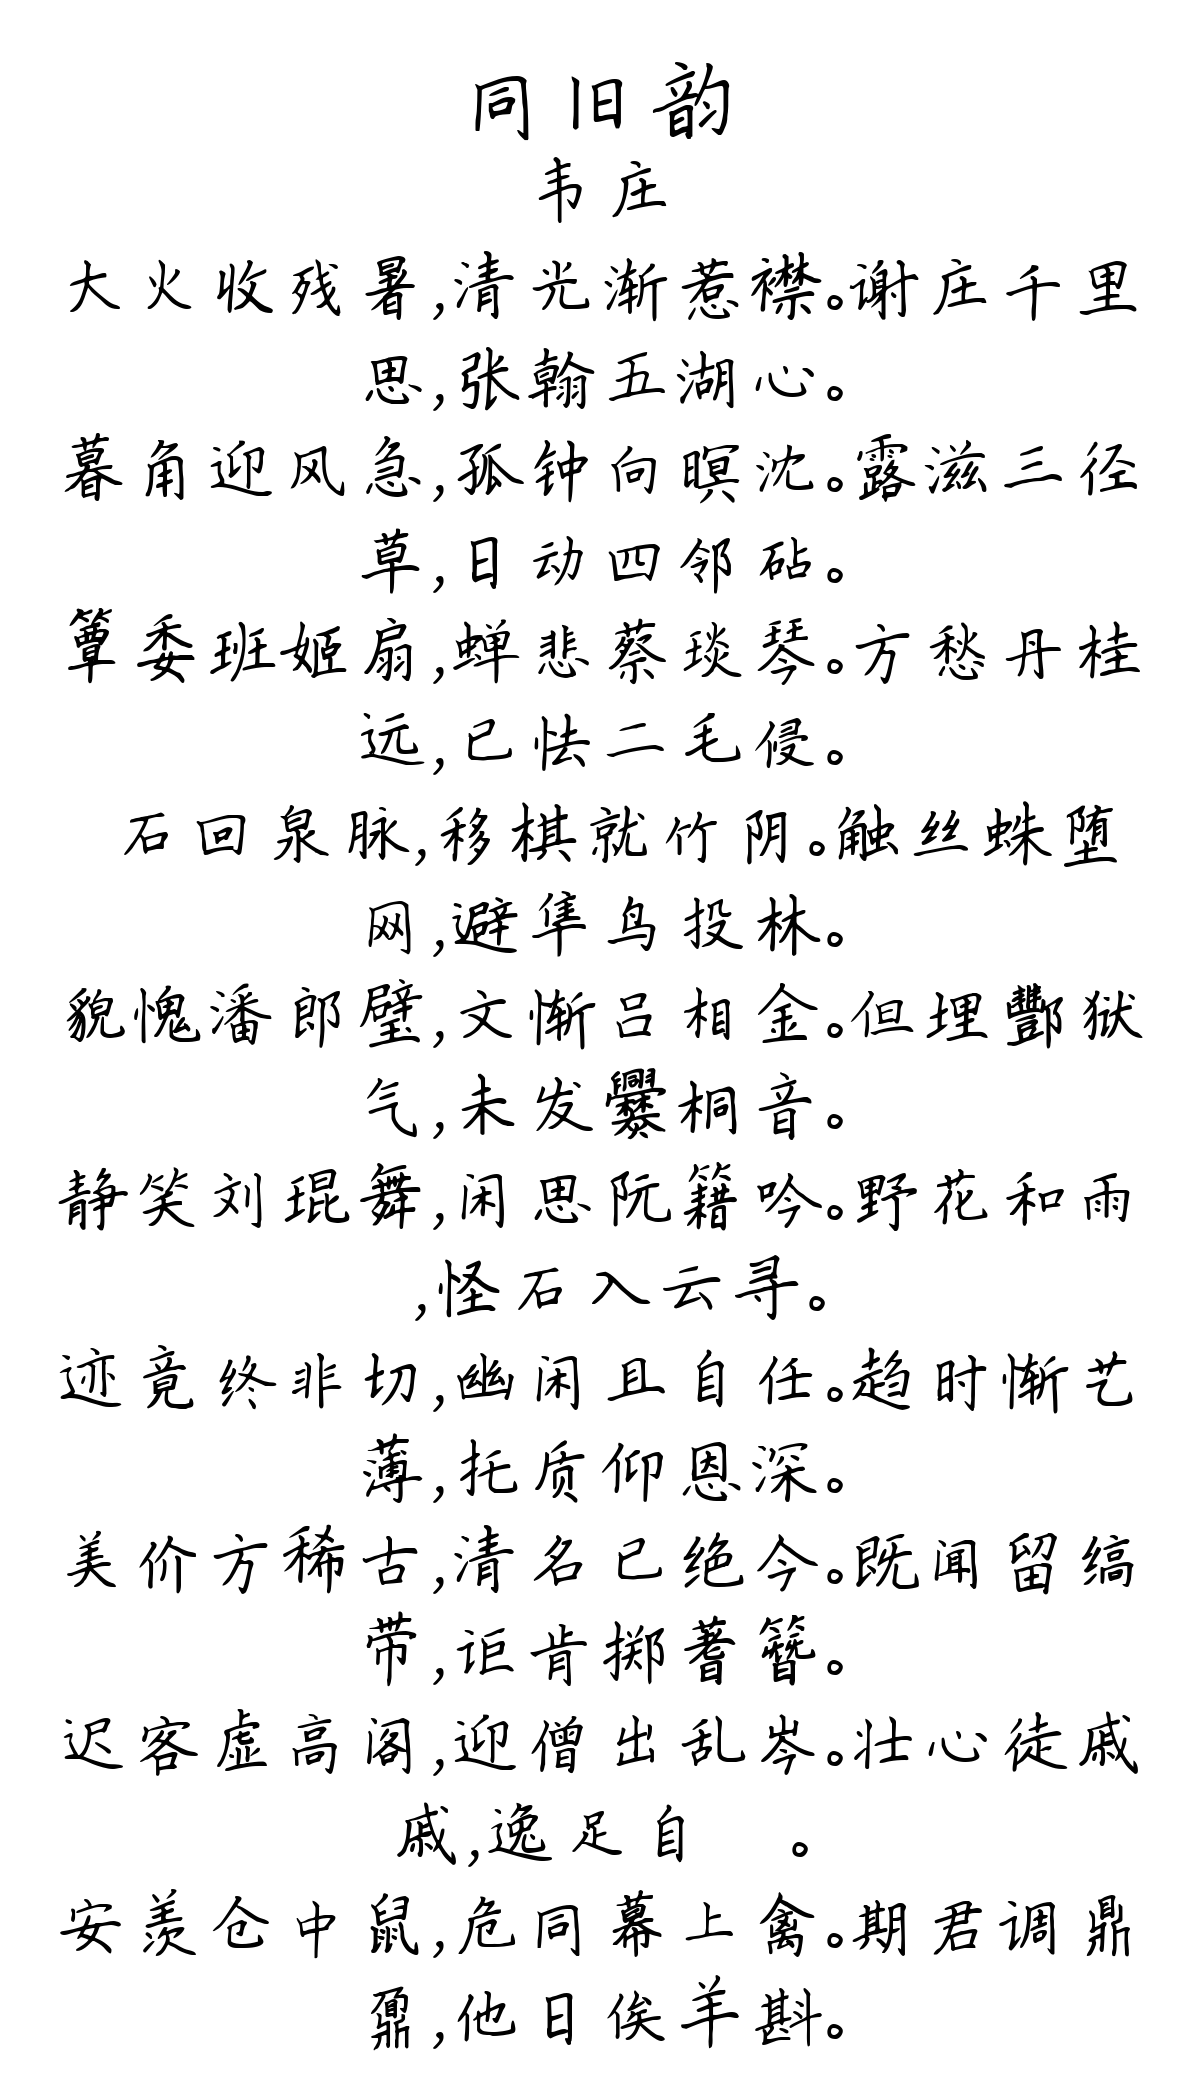 同旧韵
韦庄
大火收残暑,清光渐惹襟。谢庄千里
思,张翰五湖心。
暮角迎风急,孤钟向暝沈。露滋三径
草,日动四邻砧。
簟委班姬扇,蝉悲蔡琰琴。方愁丹桂
远,已怯二毛侵。
石回泉脉,移棋就竹阴。触丝蛛堕
网,避隼鸟投林。
貌愧潘郎璧,文惭吕相金。但埋酆狱
气,未发爨桐音。
静笑刘琨舞,闲思阮籍吟。野花和雨
,怪石入云寻。
迹竟终非切,幽闲且自任。趋时惭艺
薄,托质仰恩深。
美价方稀古,清名已绝今。既闻留缟
带,讵肯掷蓍簪。
迟客虚高阁,迎僧出乱岑。壮心徒戚
戚,逸足自 。
安羡仓中鼠,危同幕上禽。期君调鼎
鼐,他日俟羊斟。